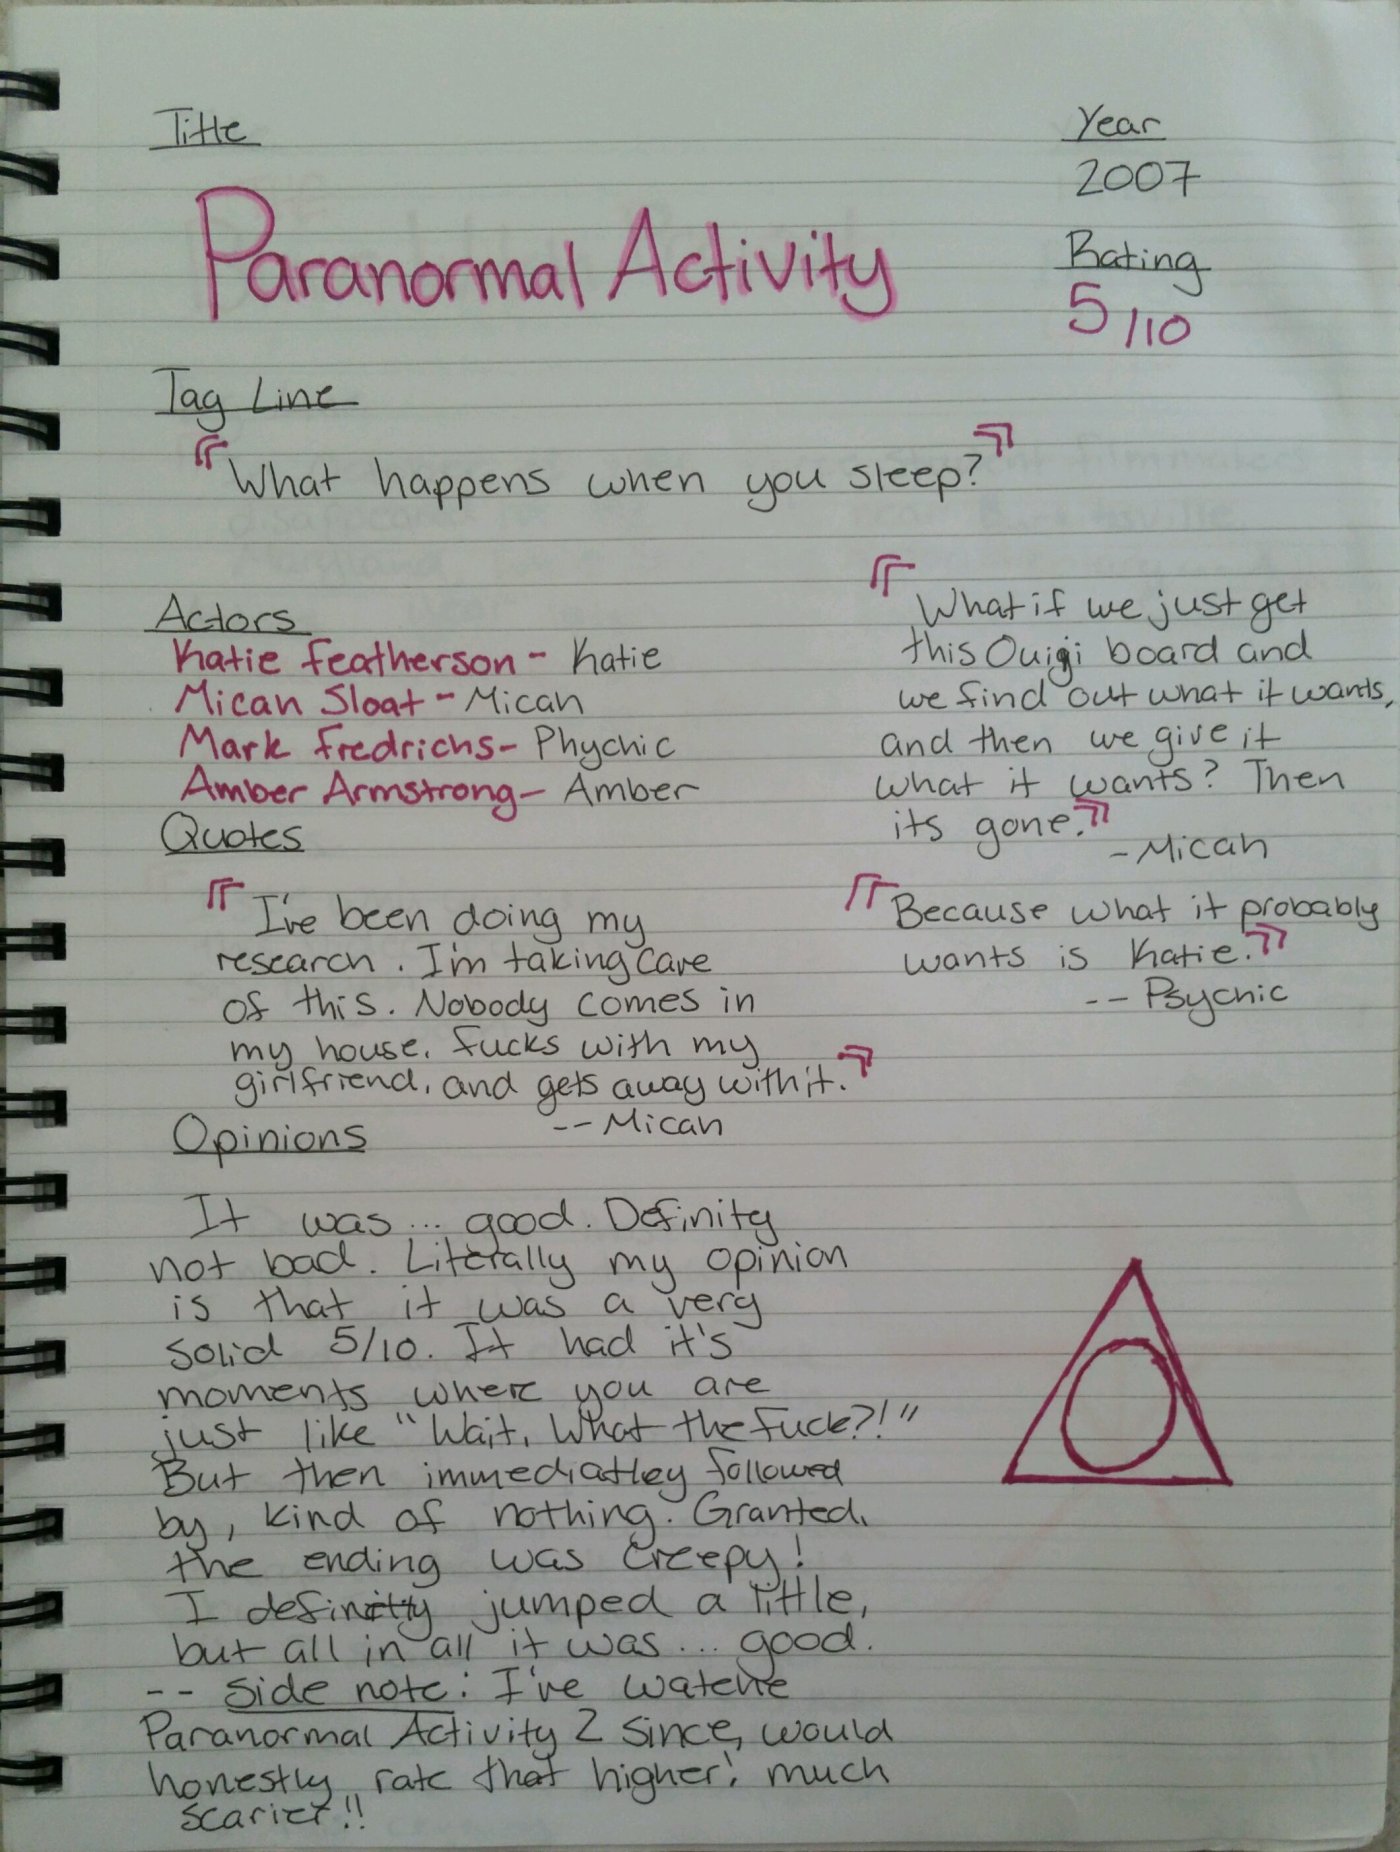 Title
Paranormal Activity
Year
2007
Rating
5/10
Tag Line
"What happens when you sleep?"
Actors
Katie Featherson - Katie
Micah Sloat - Micah
Mark Fredrichs - Phychic
Amber Armstrong - Amber
Quotes
"I've been doing my
research. I'm taking care
of this. Nobody comes in
my house, fucks with my
girlfriend, and gets away with it."
-- Micah
"What if we just get
this Ouigi board and
we find out what it wants,
and then we give it
what it wants? Then
its gone."
- Micah
"Because what it probably
wants is Katie."
-- Psychic
Opinions
It was ... good. Definity
not bad. Literally my opinion
is that it was a very
solid 5/10. It had it's
moments where you are
just like "Wait, What the fuck?!"
But then immediatley followed
by, kind of nothing. Granted,
the ending was creepy!
I definitly jumped a little,
but all in all it was ... good.
-- Side note: I've watche
Paranormal Activity 2 since, would
honestly rate that higher! much
scarier!!